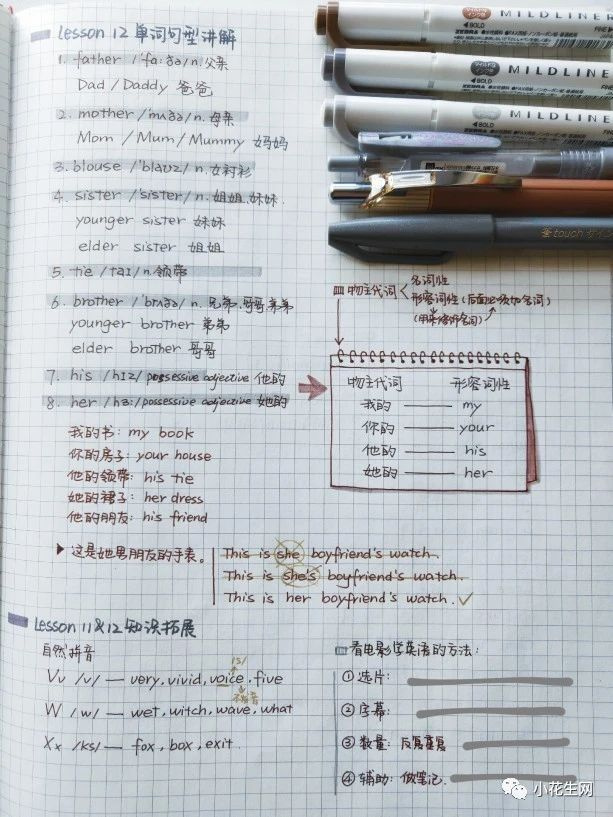 Lesson 12 单词句型讲解
1. father /'fɑ:ðə/n.父亲
Dad / Daddy 爸爸
2. mother /'mʌðə/ n.母亲
Mom / Mum / Mummy 妈妈
3. blouse /'blaʊz/ n.女衬衫
4. sister /'sistər/ n. 姐姐.妹妹.
younger sister 妹妹
elder sister 姐姐
5. tie /taɪ/ n.领带
6. brother /'brʌðə/ n.兄弟.哥哥.弟弟
younger brother 弟弟
elder brother 哥哥
7. his /hɪz/ possessive adjective 他的
8. her /hə:/ possessive adjective 她的
我的书: my book
你的房子: your house
他的领带: his tie
她的裙子: her dress
他的朋友: his friend
物主代词
名词性
形容词性(后面必须加名词)
(用来修饰名词)
物主代词 形容词性
我的 —— my
你的 —— your
他的 —— his
她的 —— her
这是她男朋友的手表。
This is she boyfriend's watch.
This is she's boyfriend's watch.
This is her boyfriend's watch. ✓
Lesson 11&12 知识拓展
自然拼音
/s/
Vv /v/ — very, vivid, voice, five
不发音
W /w/ — wet, witch, wave, what
Xx /ks/ — fox, box, exit
看电影学英语的方法:
① 选片:
② 字幕:
③ 数量: 反复重复
④ 辅助: 做笔记.
MILDLINER
BOLD
FINE
MILDLINER
BOLD
FINE
MILDLINE
BOLD
touch
小花生网